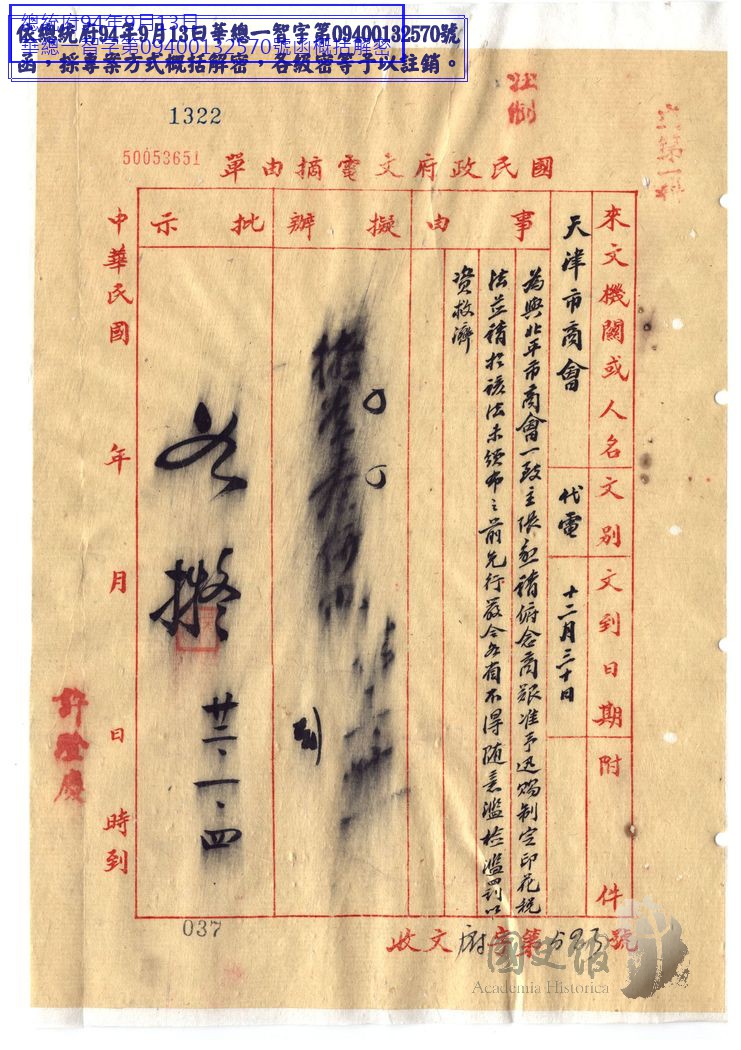 總統府94年9月13日
華總一智字第09400132570號函概括解密
依總統府94年9月13日華總一智字第09400132570號
函,採專案方式概括解密,各級密等予以註銷。
1322
50053651
國民政府文電摘由單
來文機關或人名
天津市商會
文別
代電
文到日期
十二月三十日
附件
事由
為與北平市商會一致主張懇請俯念商艱准予迅賜制定印花稅
法並請於該法未頒布之前先行嚴令各省不得隨意濫檢濫罰以
資救濟
擬辦
批示
如擬
廿二、一、四
中華民國 年 月 日 時到
許澄慶
037
收文府字第593號
國史館
Academia Historica